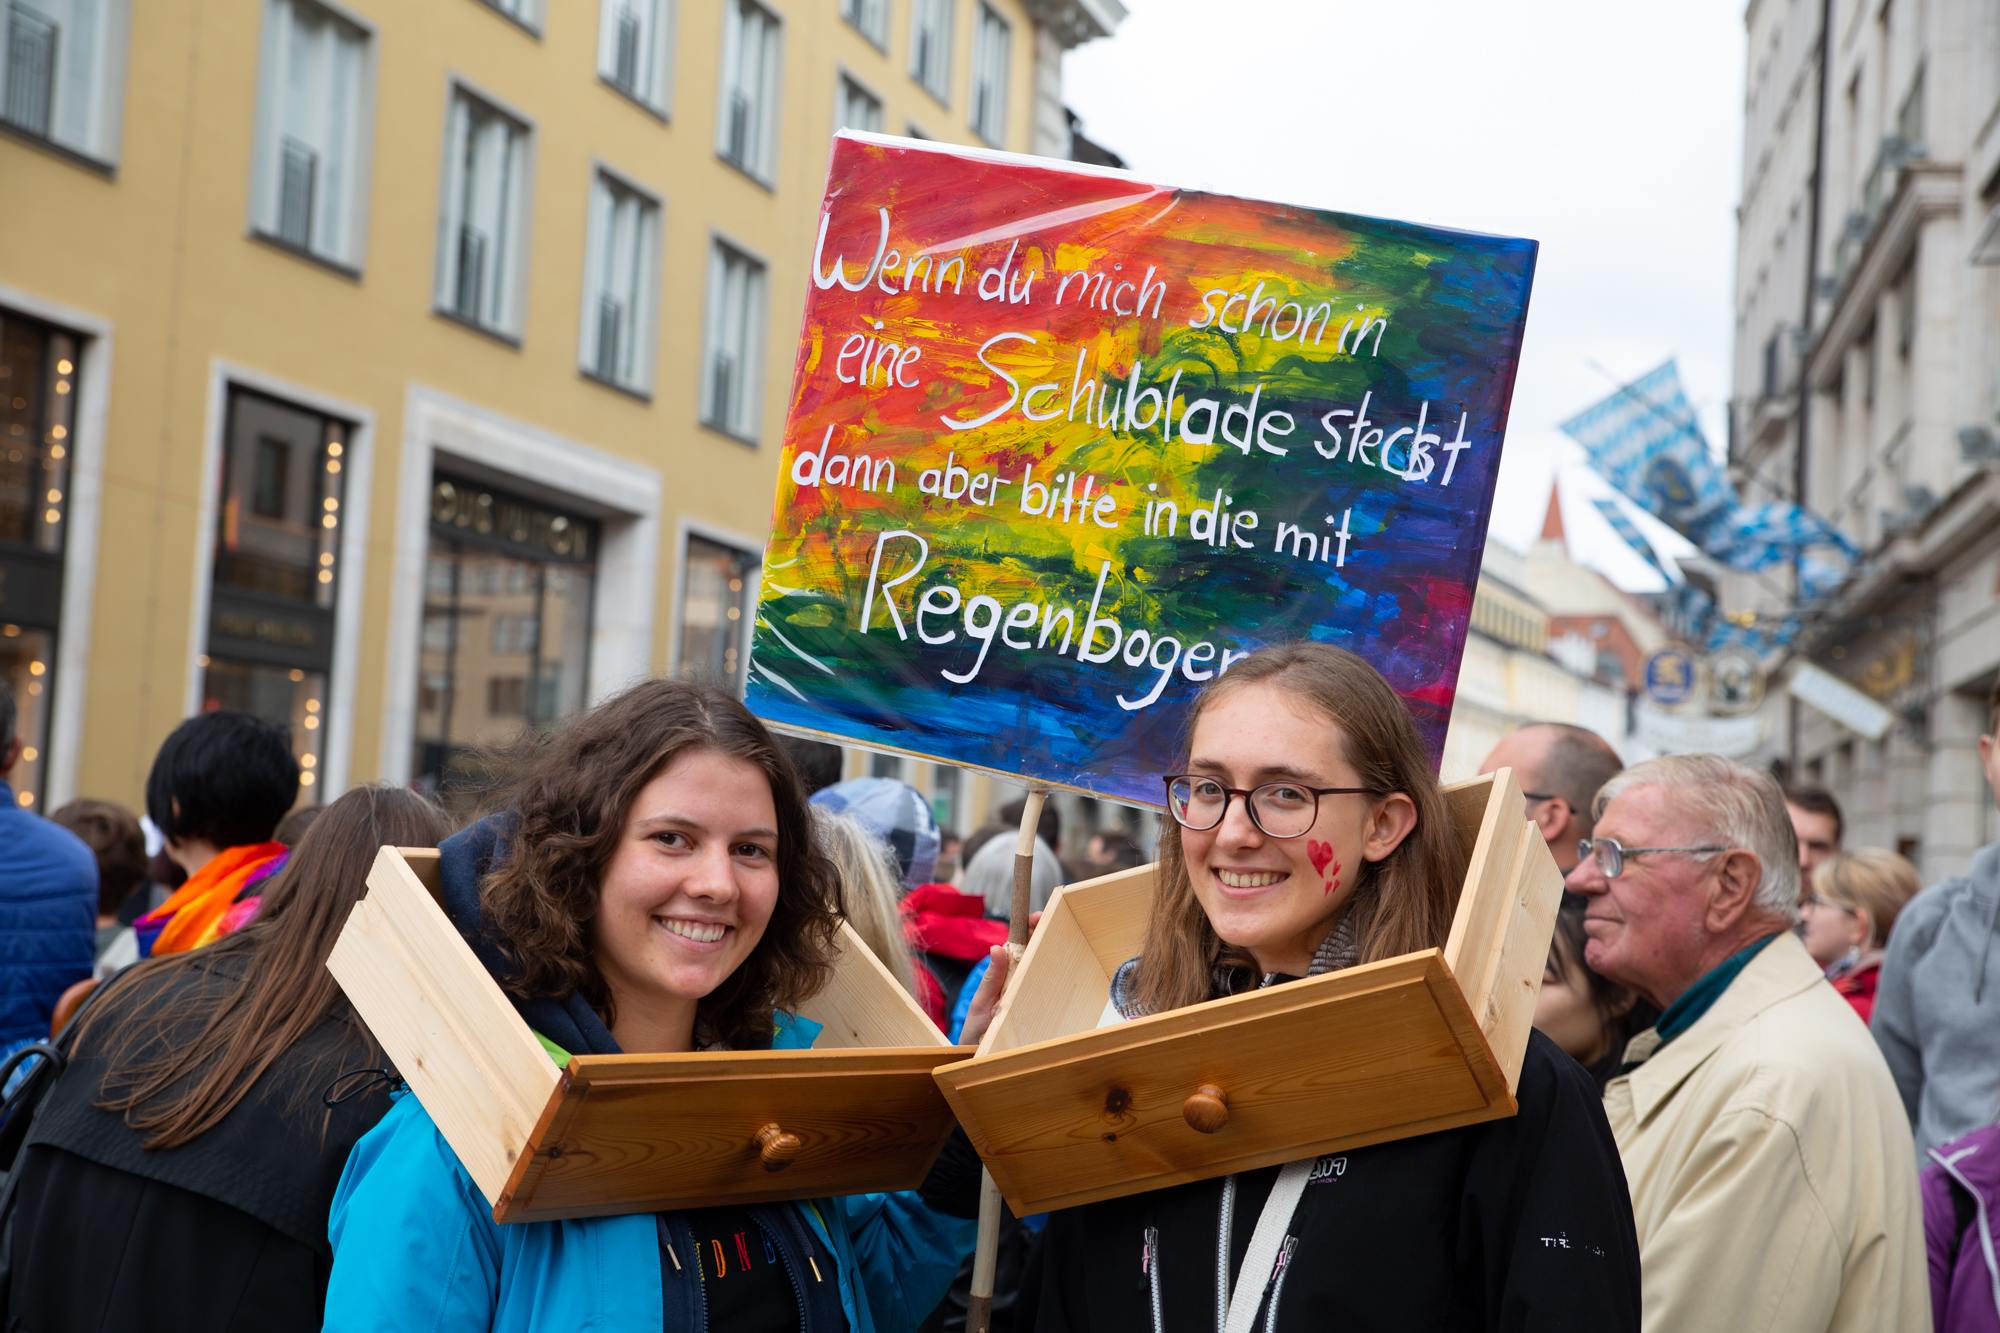 Wenn du mich schon in
eine Schublade steckst
dann aber bitte in die mit
Regenbogen